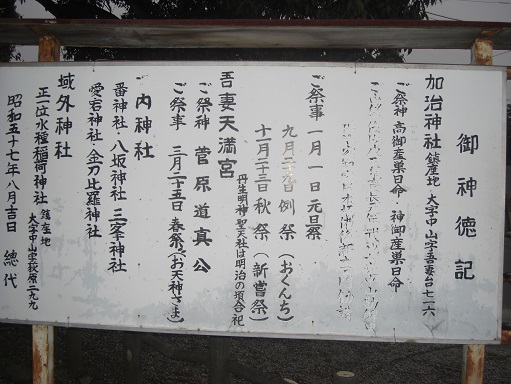 御神徳記
加治神社 鎮座地 大字中山字吾妻台七一六
ご祭神 高御産巣日命・神御産巣日命
ご祭事 一月一日 元旦祭
九月 例祭（おくんち）
十月二十三日 秋祭（新嘗祭）
吾妻天満宮
丹生明神聖天社は明治の頃合祀
ご祭神 菅原道真公
ご祭事 三月二十五日 春祭（お天神さま）
内神社
番神社・八坂神社 三峯神社
愛宕神社・金刀比羅神社
域外神社
正一位水種稲荷神社 鎮座地 大字中山字萩原二九九
昭和五十七年八月吉日 總代